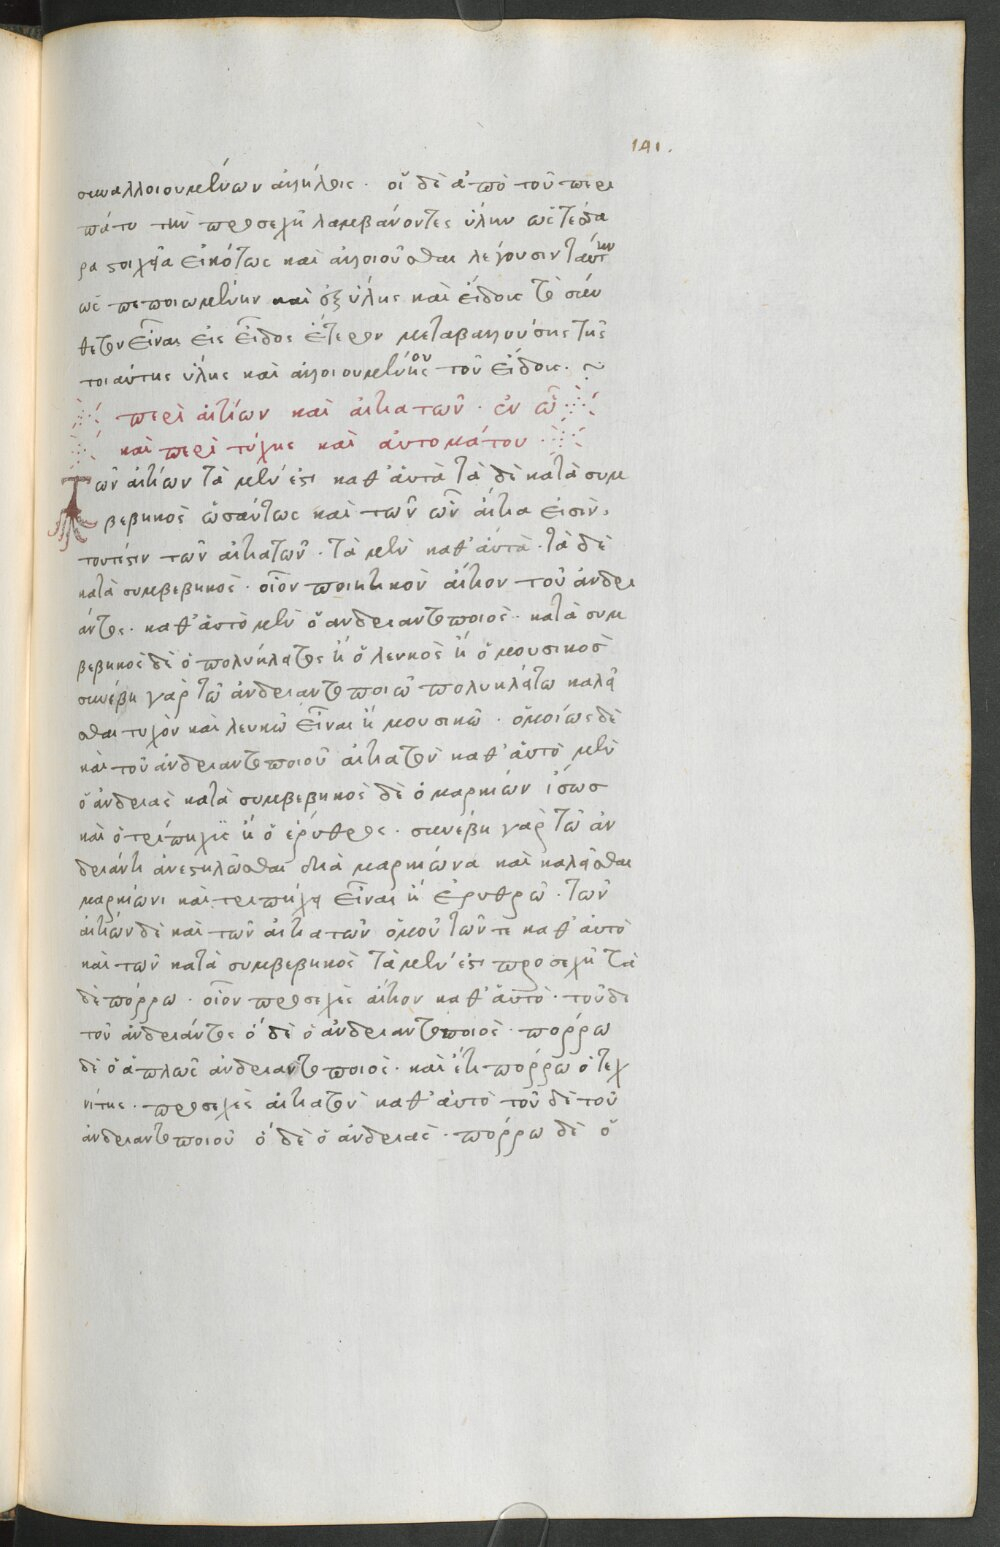 141.
συναλλοιουμένων ἀλλήλοις · οἱ δὲ ἀπὸ τοῦ περι
πάτου τὴν προσεχῆ λαμβάνοντες ὕλην ὡς τέσσα
ρα στοιχεῖα εἰκότως καὶ ἀλλοιοῦσθαι λέγουσιν ταύτην
ὡς πεποιωμένην καὶ ἐξ ὕλης καὶ εἴδους τὸ σύν
θετον εἶναι εἰς εἶδος ἕτερον μεταβαλλούσης τῆς
τοιαύτης ὕλης καὶ ἀλλοιουμένου τοῦ εἴδους · ~
περὶ αἰτίων καὶ αἰτιατῶν · ἐν ᾧ
καὶ περὶ τύχης καὶ αὐτομάτου ·
Τῶν αἰτίων τὰ μέν ἐστι καθ' αὑτὰ τὰ δὲ κατὰ συμ
βεβηκὸς ὡσαύτως καὶ τῶν ὧν αἴτια εἰσὶν ·
τουτέστιν τῶν αἰτιατῶν · τὰ μὲν καθ' αὑτὰ · τὰ δὲ
κατὰ συμβεβηκὸς · οἷον ποιητικὸν αἴτιον τοῦ ἀνδρι
άντος · καθ' αὑτὸ μὲν ὁ ἀνδριαντοποιὸς · κατὰ συμ
βεβηκὸς δὲ ὁ πολύκλειτος ἢ ὁ λευκὸς ἢ ὁ μουσικὸς
συνέβη γὰρ τῷ ἀνδριαντοποιῷ πολυκλείτῳ καλεῖ
σθαι τυχὸν καὶ λευκῷ εἶναι ἢ μουσικῷ · ὁμοίως δὲ
καὶ τοῦ ἀνδριαντοποιοῦ αἰτιατὸν καθ' αὑτὸ μὲν
ὁ ἀνδριὰς κατὰ συμβεβηκὸς δὲ ὁ μαρκιών ἴσως
καὶ ὁ τρίπηχὺς ἢ ὁ ἐρύθρος · συνέβη γὰρ τῷ ἀν
δριάντι ἀνεστηλῶσθαι διὰ μαρκιώνα καὶ καλεῖσθαι
μαρκιώνι καὶ τριπήχη εἶναι ἢ ἐρυθρῷ · τῶν
αἰτιῶν δὲ καὶ τῶν αἰτιατῶν ὁμοῦ τῶν τε καθ' αὑτὸ
καὶ τῶν κατὰ συμβεβηκὸς τὰ μέν ἐστι προσεχῆ τὰ
δὲ πόρρω · οἷον προσεχὲς αἴτιον καθ' αὑτὸ · τοῦδε
τοῦ ἀνδριάντος ὅδε ὁ ἀνδριαντοποιὸς · πόρρω
δὲ ὁ ἁπλῶς ἀνδριαντοποιὸς · καὶ ἔτι πόρρω ὁ τεχ
νίτης · προσεχὲς αἰτιατὸν καθ' αὑτὸ τοῦδε τοῦ
ἀνδριαντοποιοῦ ὅδε ὁ ἀνδριὰς · πόρρω δὲ ὁ